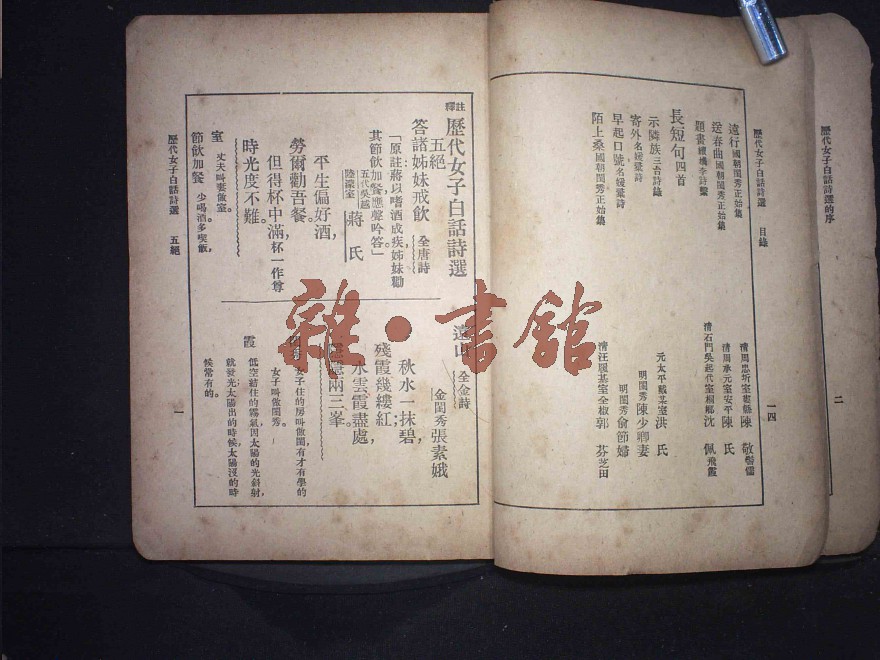 歷代女子白話詩選的序
二
歷代女子白話詩選 目錄
一四
遠行 國朝閨秀正始集
清周忠炘室
陳
送春曲 國朝閨秀正始集
清周承元室安平陳 氏
題畫
清石門吳起代室桐鄉沈 佩飛霞
長短句四首
示隣族 三台詩錄
元太平戴某室洪 氏
寄外 名媛彙詩
明閨秀陳少卿妻
早起口號 名媛彙詩
明閨秀俞節婦
陌上桑 國朝閨秀正始集
清汪履基室全椒郭 芬芝田
註釋 歷代女子白話詩選
五絕
答諸姊妹戒飲 全唐詩
「原註蔣以嗜酒成疾姊妹勸
其節飲加餐應聲吟答」
五代吳越
陸濛室 蔣 氏
平生偏好酒,
勞爾勸吾餐。
但得杯中滿,杯一作尊
時光度不難。
室 丈夫叫妻做室。
節飲加餐 少喝酒多喫飯,
遠山 全金詩
金閨秀張素娥
秋水一抹碧,
殘霞幾縷紅;
水雲霞盡處,
隱隱兩三峯。
女子住的房叫做閨有才有學的
女子叫做閨秀。
霞 低空結住的霧氣因太陽的光斜射
就發光太陽出的時候,太陽沒的時
候常有的。
歷代女子白話詩選 五絕
一
雜·書館